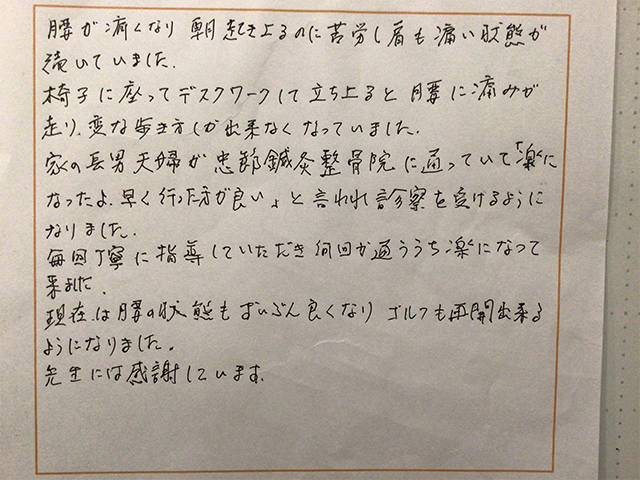 腰が痛くなり 朝起き上るのに苦労し肩も痛い状態が
続いていました.
椅子に座ってデスクワークして立ち上ると腰に痛みが
走り、変な歩き方しか出来なくなっていました.
家の長男夫婦が忠節鍼灸整骨院に通っていて「楽に
なったよ、早く行った方が良い」と言われ診察を受けるように
なりました.
毎回丁寧に指導していただき何回か通ううち楽になって
来ました.
現在は腰の状態もずいぶん良くなり ゴルフも再開出来る
ようになりました。
先生には感謝しています.